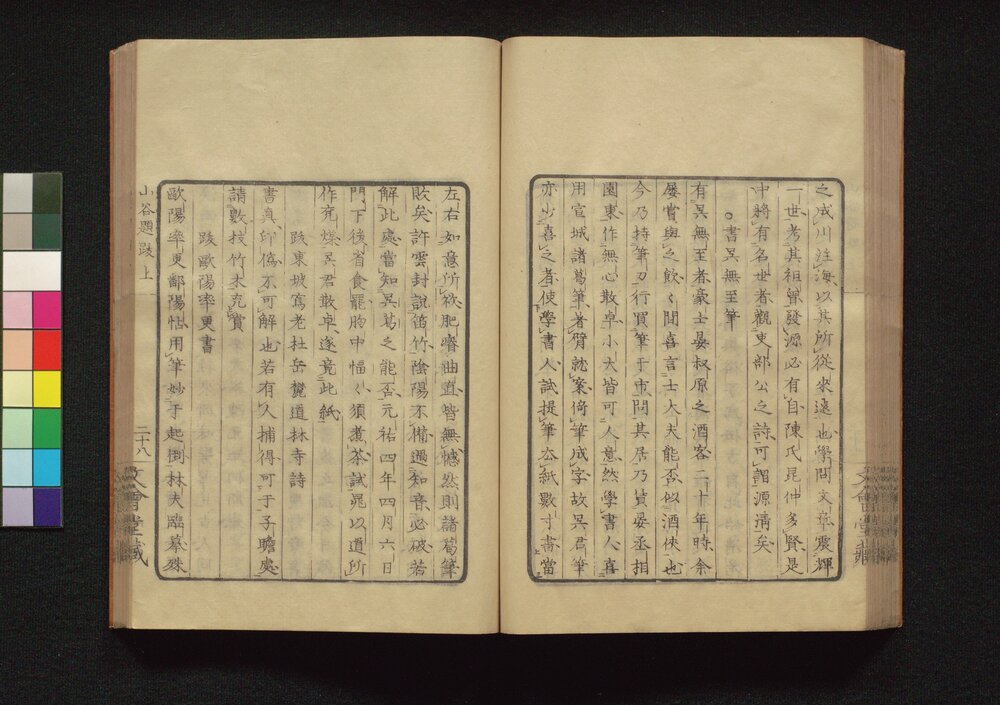 之成川注海以其所從來遠也學問文章震輝
一世考其祖曾發源必有自陳氏昆仲多賢是
中將有名世者觀吏部公之詩可謂源清矣
○書吳無至筆
有吳無至者豪士晏叔原之酒客二十年時余
屢嘗與之飲飲間喜言士大夫能否似酒俠也
今乃持筆刀行買筆于市問其居乃賃晏丞相
園東作無心散卓小大皆可人意然學書人喜
用宣城諸葛筆著臂就案倚筆成字故吳君筆
亦少喜之者使學書人試提筆去紙數寸書當
左右如意所欲肥瘠曲直皆無憾然則諸葛筆
敗矣許雲封說笛竹陰陽不備遇知音必破若
解此處當知吳葛之能否元祐四年四月六日
門下後省食罷胸中愊愊須煮茶試晁以道所
作兗煤吳君散卓遂竟此紙
跋東坡寫老杜岳麓道林寺詩
書真印僞不可解也若有人捕得可于子瞻處
請數枝竹木充賞
跋歐陽率更書
歐陽率更鄱陽帖用筆妙于起倒林夫臨摹殊
山谷題跋 上
二十八
文會堂藏